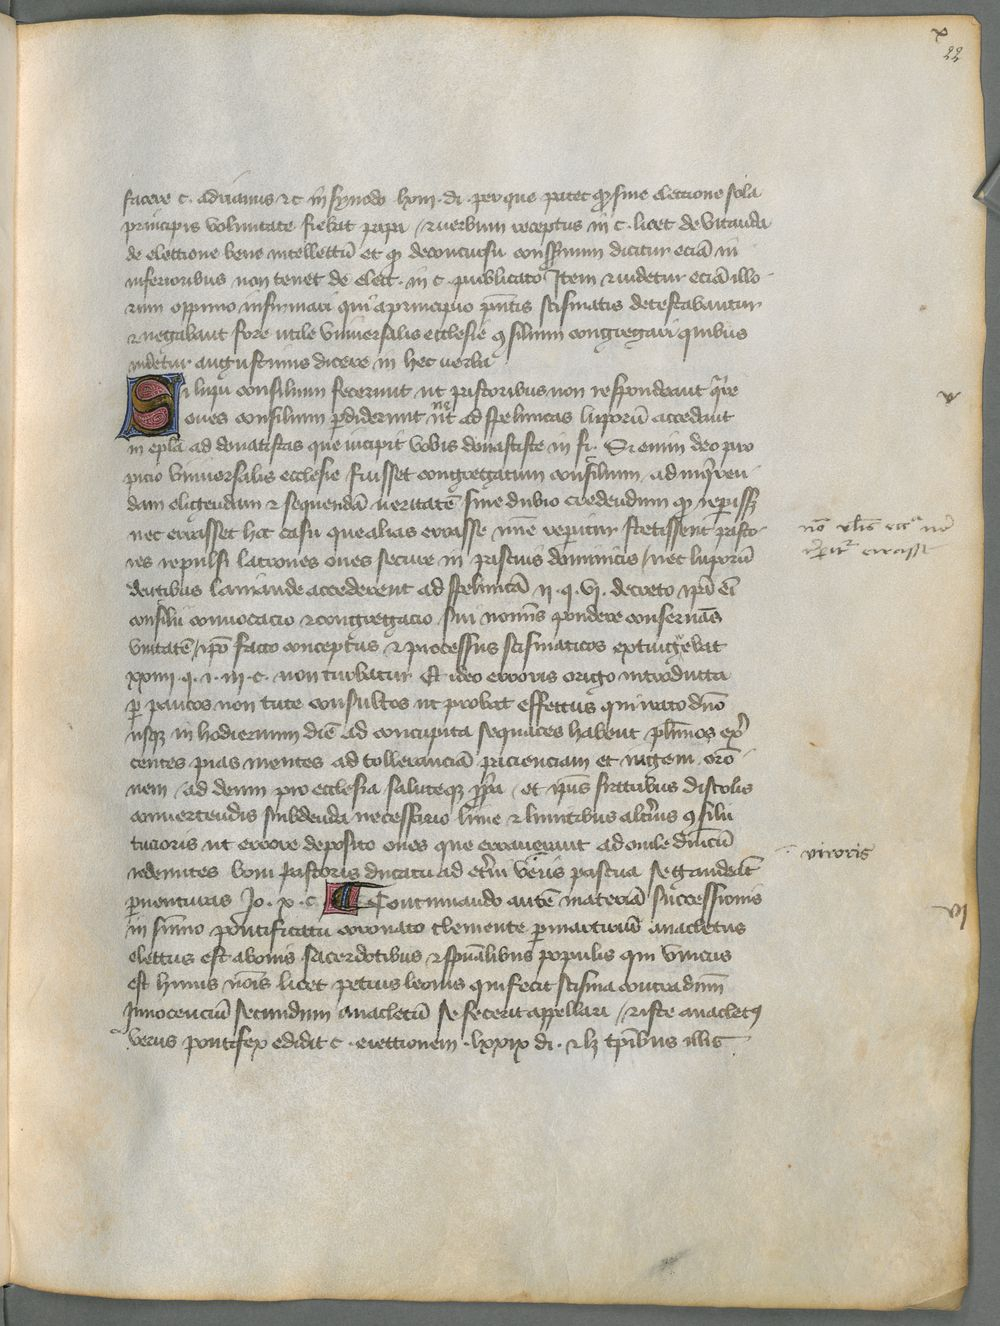 x
22
facere c. adrianus ⁊c in synodo lxiii. di. per que patet qꝫ sine electione sola
principis voluntate fiebat papa / ⁊ verbum receptus in c. licet de vitanda
de electione bene intellectū et qꝫ de concursu dicitur eciā in
inferioribus non tenet de elect. in c. publicato Item ⁊ videtur eciā illo
rum oppinio infirmari qui a principio pn̄tis scismatis detestabantur
⁊ negabant fore utile universalis ecclesie ꝯsilium congregari quibus
videtur augustinus dicere in hec verba
Si lupi consilium fecerunt ut pastoribus non respondeant qͣre
oves consilium perdiderunt ut ne ad speluncas luporū accedant
in epl̄a ad donatistas que incipit vobis donatiste in fi. Si enim deo pro
picio universalis ecclesie fuisset congregatum consilium ad inq̇ren
dam eligendam ⁊ sequendā veritatē sine dubio credendum qꝫ
nec errasset hoc casu que alias errasse nūc reperitur stetissent pasto
res repulsi latrones oves secure in pascuis dominicis / nec luporū
dentibus laniande accederent ad speluncā ii. q. vi. decreto ipā eī
consilii convocacio ⁊ congregacio sui nomīs pondere conservās
unitatē / ip̄o facto conceptus ⁊ processus scismaticos extinguebat
xxiiii. q. i. iii. c. non turbatur Et ideo erroris origo introducta
ꝑ paucos non tute consultos ut probat effectus qui irato dn̄o
usqꝫ in hodiernum diē ad concupita sequaces habent pl̄imos
centes pias mentes ad tollerancīā pacienciam et iugem oro
nem / ad deum pro ecclesia saluteqꝫ / et ip̄us discolis
convertendis subdenda necessario lime ⁊ limitibus alt̄ius ꝯsilii
tucioris ut errore deposito oves que erraverunt ad ovile dn̄icū
redeuntes boni pastoris ducatu ad et̄ni veris pascua se gaudeāt
ꝑventuras Jo. x. c. Continuando autē materiā successionis
in sūmo pontificatu coronato clemente ꝑ martiriū anacletus
electus est a bonis sacerdotibus ⁊ spūalibus populis qui unicus
est huius nōis licet petrus leonis qui fecit scisma contra dn̄m
Innocenciū secundum anacletū se fecerit appellari / ⁊ iste anacletꝰ
verus pontifex edidit c. eiectionem. lxxix di. ⁊ lꝫ tp̄ibus illis
v
nō
errasse
tucioris
vi